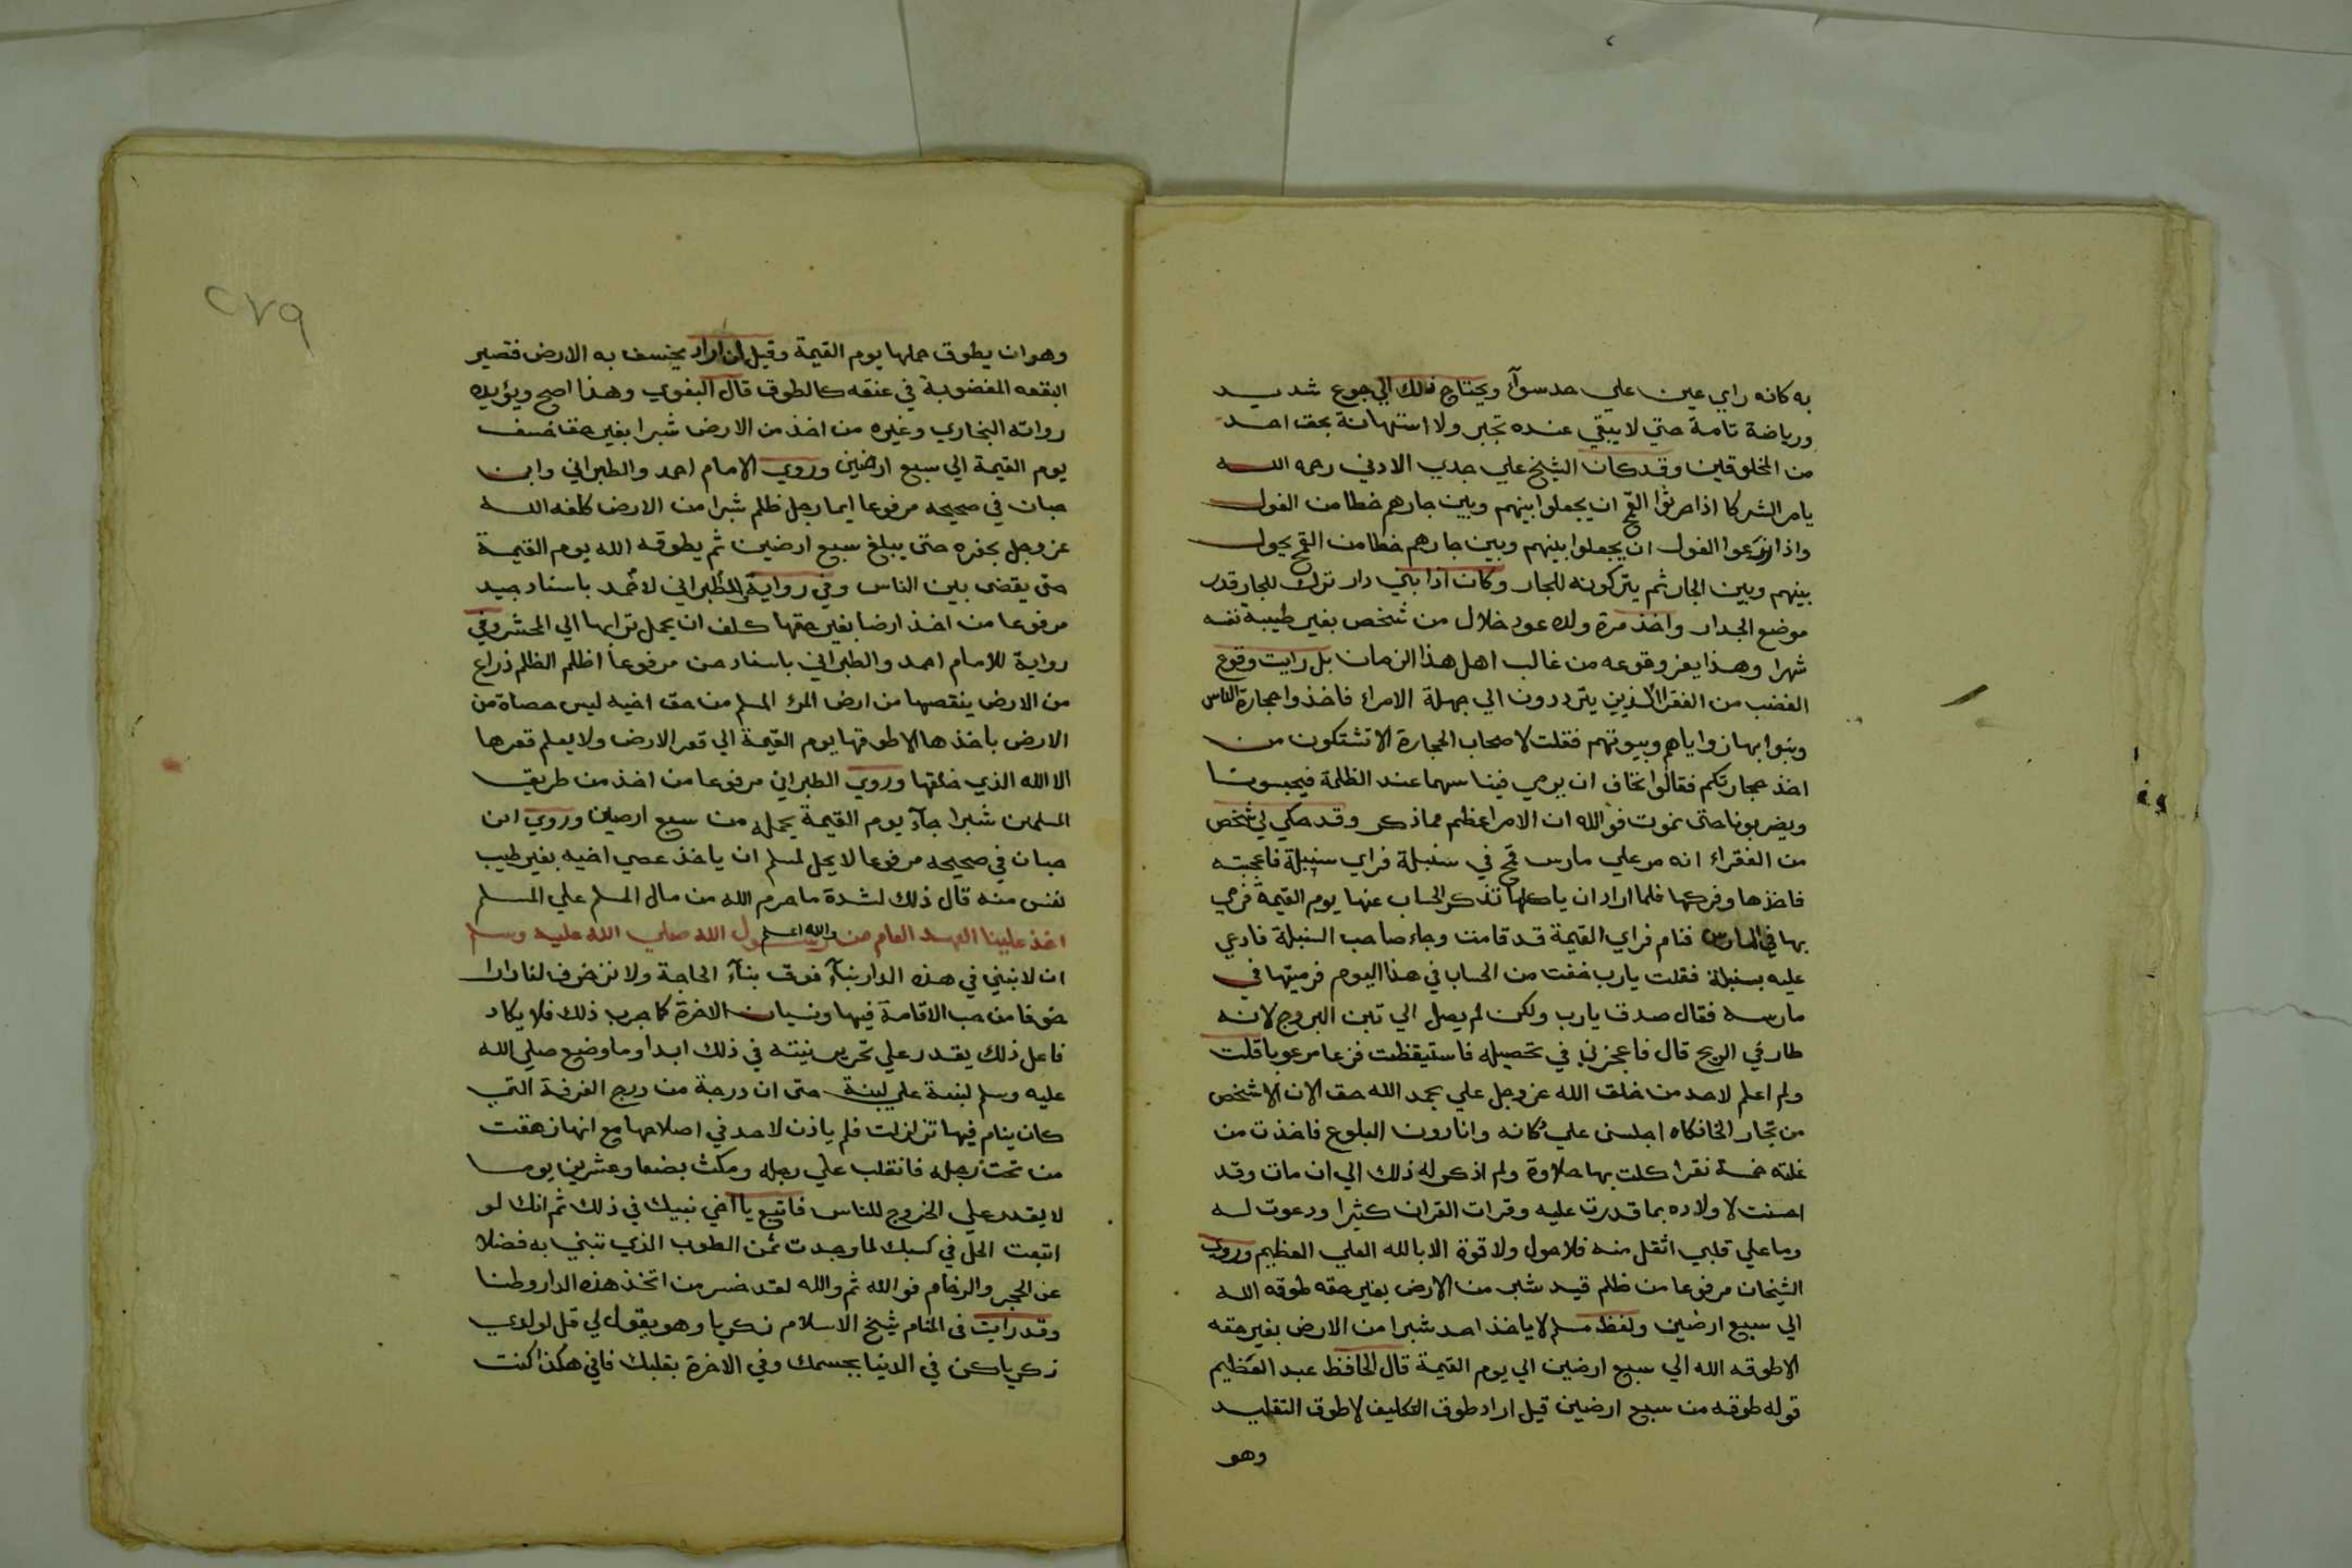 به كانه راي عين علي حد سوآء ويحتاج ذلك الي جوع شديد
ورياضة تامة حتي لا يبقي عنده تجبر ولا استهانة بحق احد
من المخلوقين وقد كان الشيخ علي جدي الادني رحمه الله
يامر الشركا اذا حرثوا القمح ان يجعلوا بينهم وبين جارهم خطا من الفول
واذا زرعوا الفول ان يجعلوا بينهم وبين جارهم خطا من القمح يحول
بينهم وبين الجار ثم يتركونه للجار وكان اذا بني دار ترك للجار قدر
موضع الجدار واخذ مرة ولده عود خلال من شخص بغير طيبة نفسه
شهرا وهذا يعز وقوعه من غالب اهل هذا الزمان بل رايت وقوع
الغضب من الفقرا الذين يترددون الي جهلة الامراء فاخذوا حجارة الناس
وبنوا بها زواياهم وبيوتهم فقلت لاصحاب الحجارة الا تشتكون من
اخذ حجارتكم فقالوا نخاف ان يرمي فينا سهما عند الظلمة فيحبسونا
ويضربونا حتى نموت فوالله ان الامر اعظم مما ذكر وقد حكي لي شخص
من الفقراء انه مر علي مارس قمح في سنبلة فراي سنبلة فاعجبته
فاخذها وفركها فلما اراد ان ياكلها تذكر الحساب عنها يوم القيمة فرمي
بها في المارس فنام فراي القيمة قد قامت وجاء صاحب السنبلة فادعي
عليه بسنبلة فقلت يارب خفت من الحساب في هذا اليوم فرميتها في
مارسه فقال صدق يارب ولكن لم يصل الي تبن البروج لانه
طار في الريح قال فاعجزني في تحصيله فاستيقظت فزعا مرعوبا قلت
ولم اعلم لاحد من خلق الله عز وجل علي بحمد الله حق الان الا شخص
من تجار الخانكاه اجلسني علي دكانه وانا دون البلوغ فاخذت من
غلته خمسة نقرا كلت بها حلاوة ولم اذكر له ذلك الي ان مات وقد
احسنت لاولاده بما قدرت عليه وقرات القران كثيرا ودعوت له
وما علي قلبي اثقل منه فلا حول ولا قوة الا بالله العلي العظيم وروي
الشيخان مرفوعا من ظلم قيد شبر من الارض بغير حقه طوقه الله
الي سبع ارضين ولفظ مسلم لا ياخذ احد شبرا من الارض بغير حقه
الا طوقه الله الي سبع ارضين الي يوم القيمة قال الحافظ عبد العظيم
قوله طوقه من سبع ارضين قيل اراد طوق التكليف لا طوق التقليد
وهو
٢٧٩
وهو ان يطوق حملها يوم القيمة وقيل ان اراد يخسف به الارض فتصير
البقعه المغضوبة في عنقه كالطوق قال البغوي وهذا اصح ويؤيده
رواته البخاري وغيره من اخذ من الارض شبرا بغير حقه خسف
يوم القيمة الي سبع ارضين وروي الامام احمد والطبراني وابن
حبان في صحيحه مرفوعا ايما رجل ظلم شبرا من الارض كلفه الله
عز وجل بحفره حتى يبلغ سبع ارضين ثم يطوقه الله يوم القيمة
حتى يقضى بين الناس وفي رواية للطبراني لاحمد باسناد جيد
مرفوعا من اخذ ارضا بغير حقها كلف ان يحمل ترابها الي المحشر وفي
رواية للامام احمد والطبراني باسناد حسن مرفوعا اظلم الظلم ذراع
من الارض ينقصها من ارض المرء المسلم من حق اخيه ليس حصاة من
الارض ياخذها الا طوقها يوم القيمة الي قعر الارض ولا يعلم قعرها
الا الله الذي خلقها وروي الطبراني مرفوعا من اخذ من طريق
المسلمين شبرا جآء يوم القيمة يحمله من سبع ارضين وروي ابن
حبان في صحيحه مرفوعا لا يحل لمسلم ان ياخذ عصي اخيه بغير طيب
نفس منه قال ذلك لشدة ما حرم الله من مال المسلم علي المسلم
والله اعلم
اخذ علينا العهد العام من رسول الله صلي الله عليه وسلم
ان لا نبني في هذه الدار بنآء فوق بنآء الحاجة ولا نزخرف لنا دارا
خوفا من حب الاقامة فيها ونسيان الاخرة كما جرب ذلك فلا يكاد
فاعل ذلك يقدر علي تحرير نيته في ذلك ابدا وما وضع صلي الله
عليه وسلم لبنة علي لبنة حتى ان درجة من درج الغرفة التي
كان ينام فيها تزلزلت فلم ياذن لاحد في اصلاحها مع انها زهقت
من تحت رجله فانقلب علي رجله ومكث بضعا وعشرين يوما
لا يقدر علي الخروج للناس فاتبع يا اخي نبيك في ذلك ثم انك لو
اتبعت الحل في كسبك لما وجدت ثمن الطوب الذي تبني به فضلا
عن الحجر والرخام فوالله ثم والله لقد خسر من اتخذ هذه الدار وطنا
وقد رايت في المنام شيخ الاسلام زكريا وهو يقول لي قل لولدي
زكريا كن في الدنيا بجسمك وفي الاخرة بقلبك فاني هكذا كنت